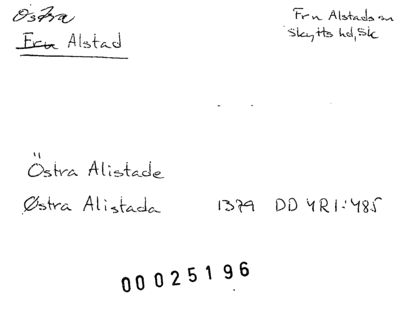 Östra
Fru Alstad
Fru Alstads sn
Skytts hd, Sk
Östra Alistade
Østra Alistada 1379 DD 4R1:485
00025196